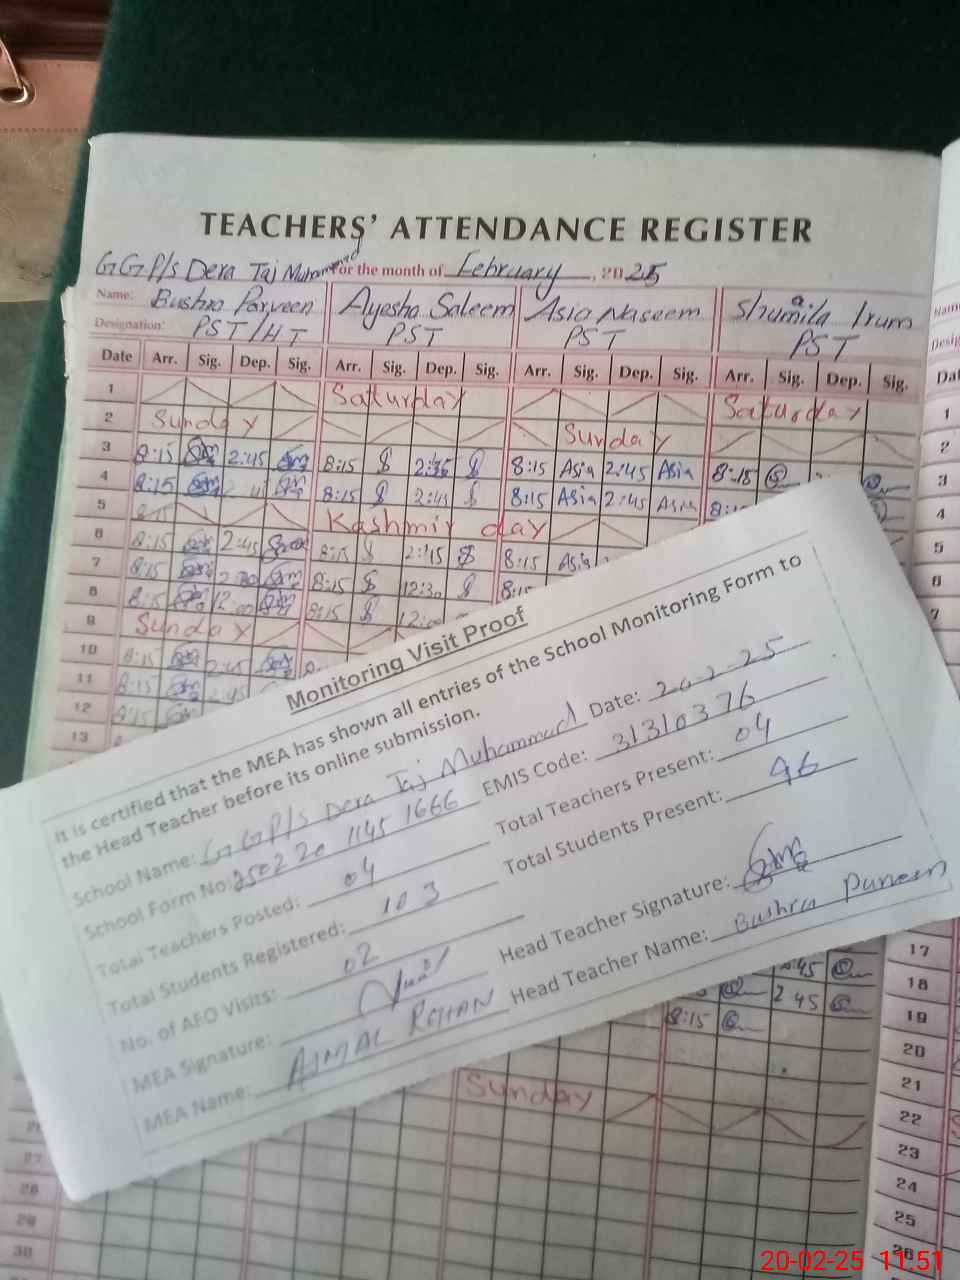 TEACHERS' ATTENDANCE REGISTER
GGP/s Dera Taj Muhammad For the month of February, 2025
Name: Bushra Parveen Ayesha Saleem Asia Naseem Shumaila Irum
Designation: PST/HT PST PST PST
Date Arr. Sig. Dep. Sig. Arr. Sig. Dep. Sig. Arr. Sig. Dep. Sig. Arr. Sig. Dep. Sig.
1 Saturday Saturday 1
2 Sunday Sunday 2
3 8:15 2:45 8:15 8:15 Asia 2:45 Asia 8:15 3
4 8:15 8:15 2:45 8:15 Asia 2:45 Asia 4
5 8:15 Kashmir day 5
6 8:15 2:45 8:15 2:45 8:15 Asia 6
7 8:15 8:15 12:30 8:15 7
8 8:15 12:00 8:15 12:00
9 Sunday
10 8:15 2:45
11 8:15 2:45
12 8:15
13
Monitoring Visit Proof
It is certified that the MEA has shown all entries of the School Monitoring Form to
the Head Teacher before its online submission.
School Name: GGP/s Dera Taj Muhammad Date: 20-2-25
School Form No: 250220 1145 1666 EMIS Code: 31310376
Total Teachers Posted: 04 Total Teachers Present: 04
Total Students Registered: 103 Total Students Present: 96
No. of AEO Visits: 02 Head Teacher Signature:
MEA Signature: Head Teacher Name: Bushra Parveen
MEA Name: AJMAL REHAN
17
2:45 18
8:15 19
20
21
Sunday 22
27 23
28 24
29 25
30 26
20-02-25 11:51